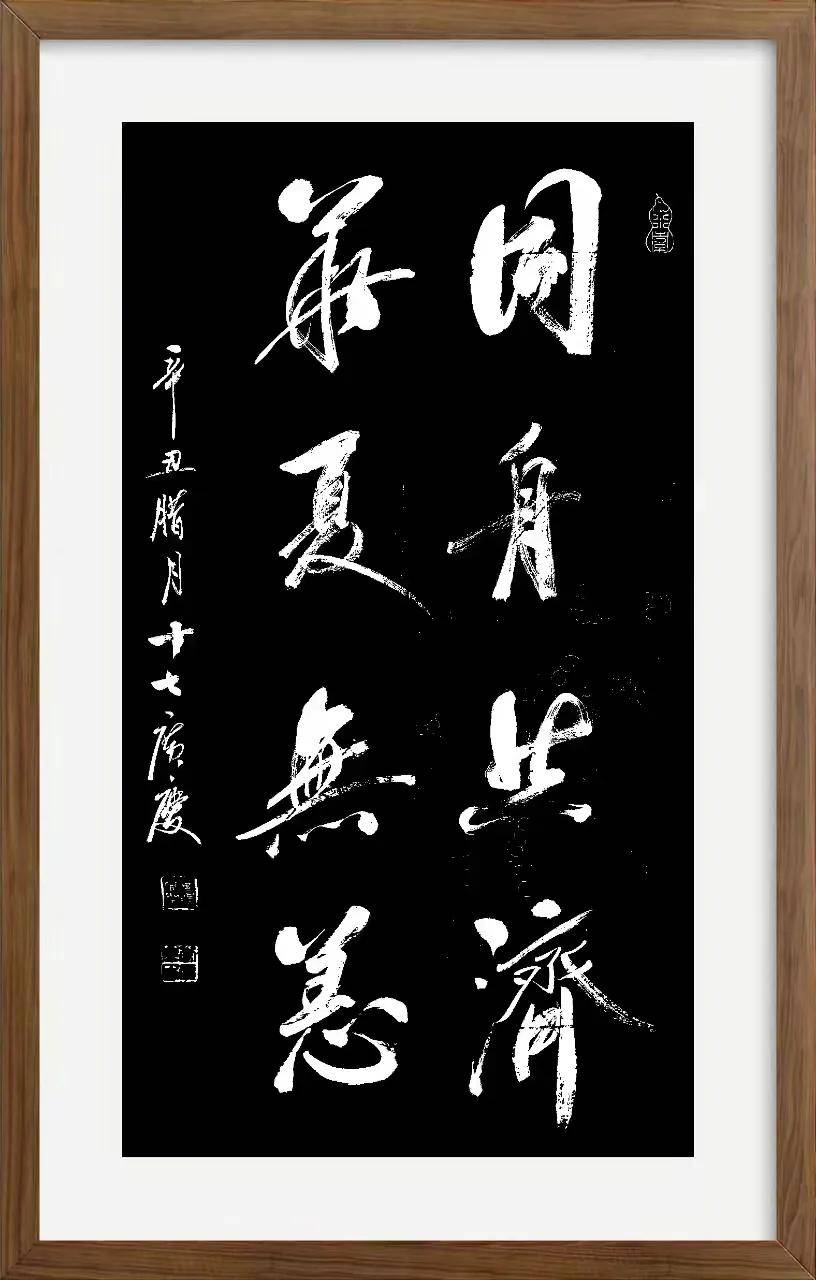 同舟共濟
華夏無恙
辛丑腊月十七廣慶